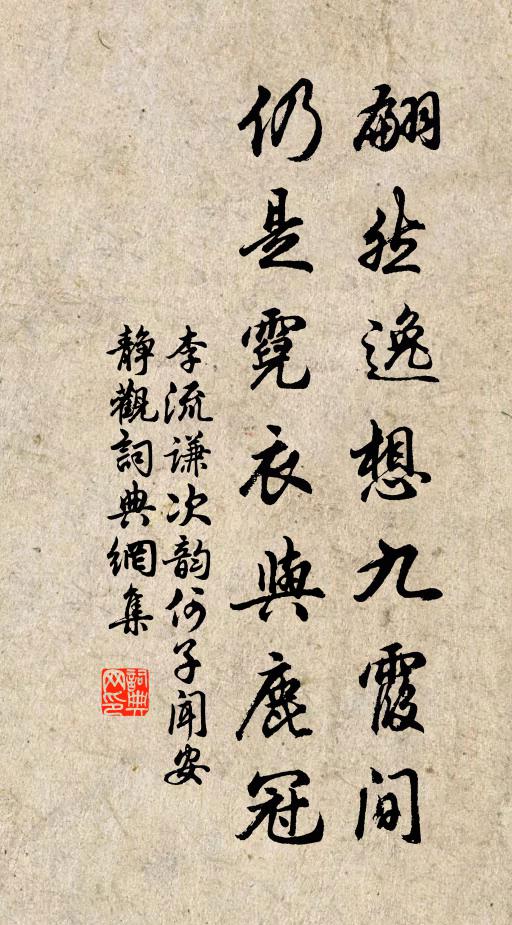 翩然逸想九霞间
仍是霓衣與鹿冠
李流谦次韵何子闻安
静觀詞典網集
詞典网印